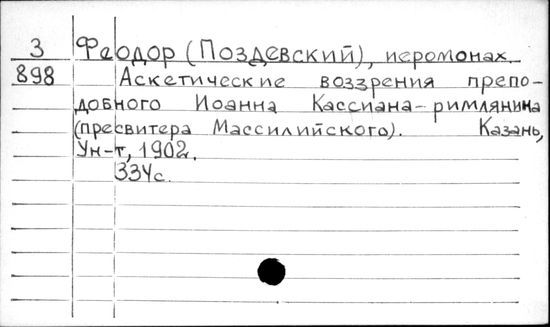 З Феодор (Поздевский), иеромонах.
898 Аскетические воззрения препо-
добного Иоанна Кассиана-римлянина
(пресвитера Массилийского). Казань,
Ун-т, 1902.
334с.